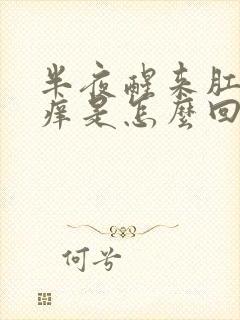 半夜醒来肛
痒是怎麼回
何兮